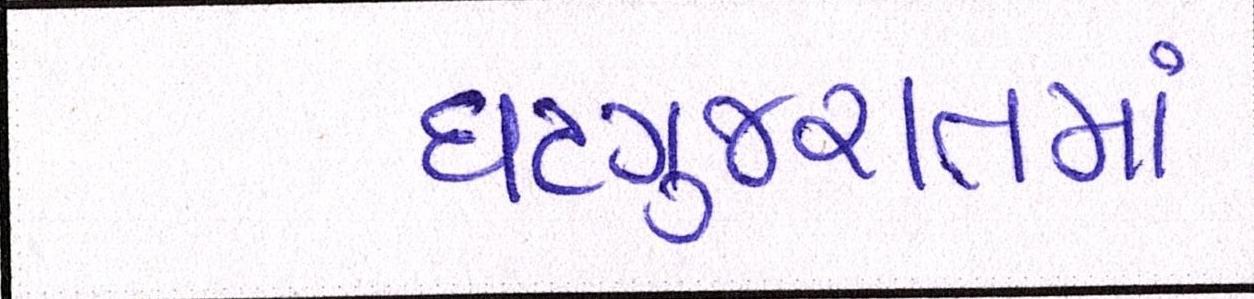 ઘટગુજરાતમાં